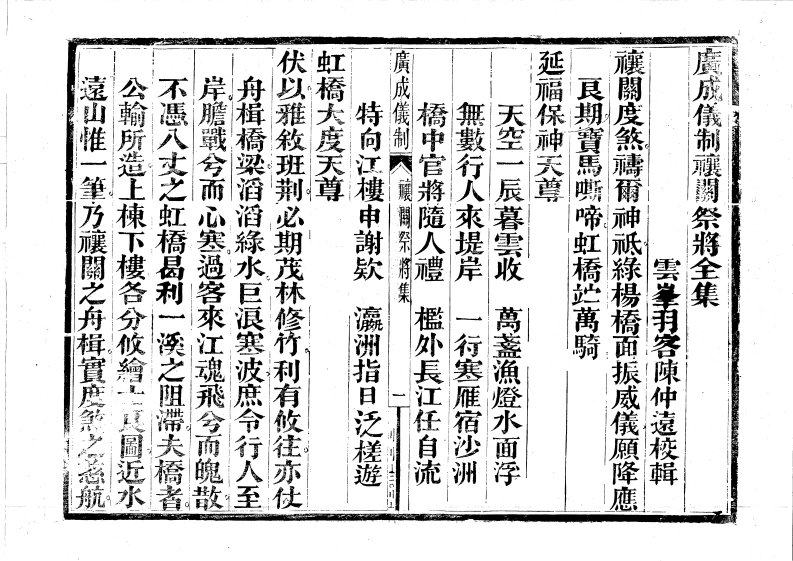 廣成儀制禳關祭將全集
雲峯羽客陳仲遠校輯
禳關度煞禱爾神祇綠楊橋面振威儀願降應
良期寶馬嘶啼虹橋竚萬騎
延福保神天尊
天空一辰暮雲收　萬盞漁燈水面浮
無數行人來堤岸　一行寒雁宿沙洲
橋中官將隨人禮　檻外長江任自流
特向江樓申謝欵　瀛洲指日泛槎遊
廣成儀制　禳關祭將集　一
虹橋大度天尊
伏以雅敘班荆必期茂林修竹利有攸往亦仗
舟楫橋梁滔滔綠水巨浪寒波庶令行人至
岸膽戰兮而心寒過客來江魂飛兮而魄散
不憑八丈之虹橋曷利一溪之阻滯夫橋者
公輸所造上棟下樓各分攸繪士良圖近水
遠山惟一筆乃禳關之舟楫實度煞之慈航